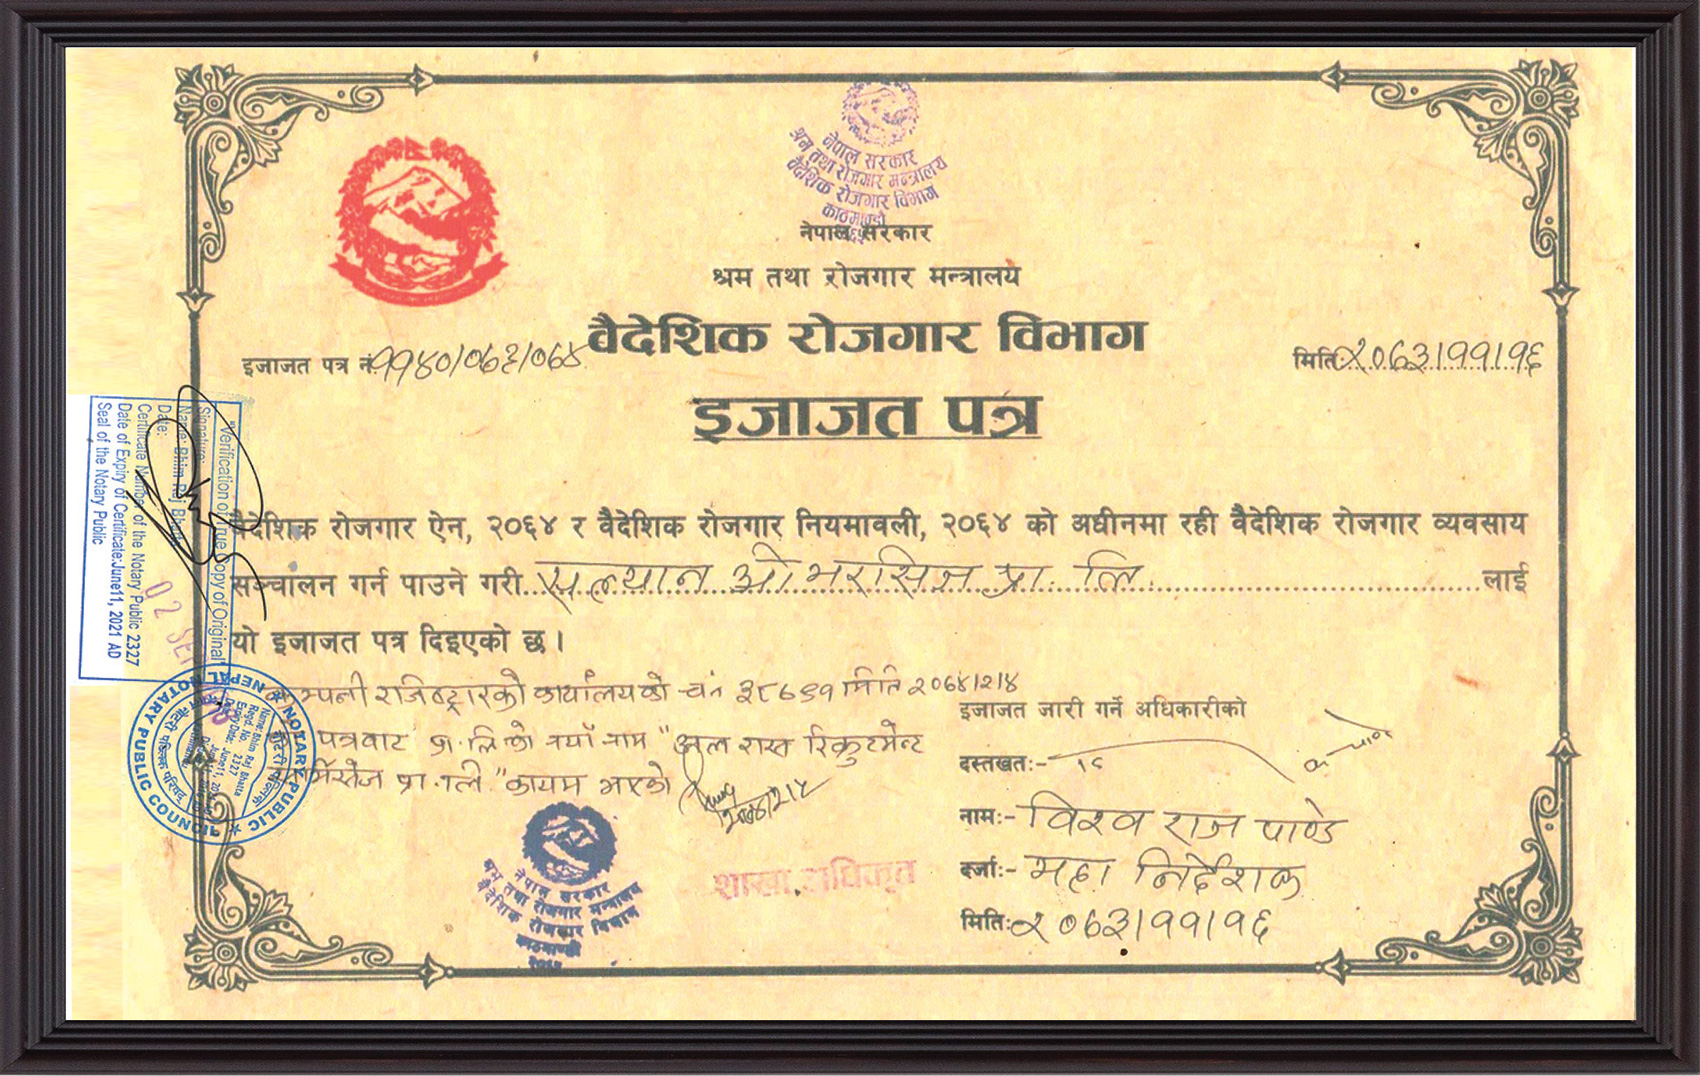 नेपाल सरकार
श्रम तथा रोजगार मन्त्रालय
वैदेशिक रोजगार विभाग
काठमाण्डौ
नेपाल सरकार
श्रम तथा रोजगार मन्त्रालय
वैदेशिक रोजगार विभाग
इजाजत पत्र नं. ११४०/०७३/०७४
मितिः २०७३।११।१६
इजाजत पत्र
वैदेशिक रोजगार ऐन, २०६४ र वैदेशिक रोजगार नियमावली, २०६४ को अधीनमा रही वैदेशिक रोजगार व्यवसाय
सञ्चालन गर्न पाउने गरी सल्यान ओभरसिज प्रा. लि. लाई
यो इजाजत पत्र दिइएको छ ।
रजिष्ट्रारको कार्यालयको च.नं मिति २०७४।२।४
पत्रबाट प्रा.लि.को नयाँ नाम "अल रास्त रिक्रुटमेन्ट
प्रा.लि." कायम भएको
इजाजत जारी गर्ने अधिकारीको
दस्तखतः-
नामः- विश्व राज पाण्डे
दर्जाः- महा निर्देशक
मितिः २०७३।११।१६
शाखा अधिकृत
नेपाल सरकार
श्रम तथा रोजगार मन्त्रालय
वैदेशिक रोजगार विभाग
काठमाण्डौ
"Verification of True Copy of Original"
Signature:
Name: Bhim Raj
Date:
Certificate Number of the Notary Public 2327
Date of Expiry of Certificate:June11, 2021 AD
Seal of the Notary Public
02 SEP
NOTARY PUBLIC
NOTARY PUBLIC COUNCIL
NEPAL
Name: Bhim Raj Bhatta
Regd. No. 2327